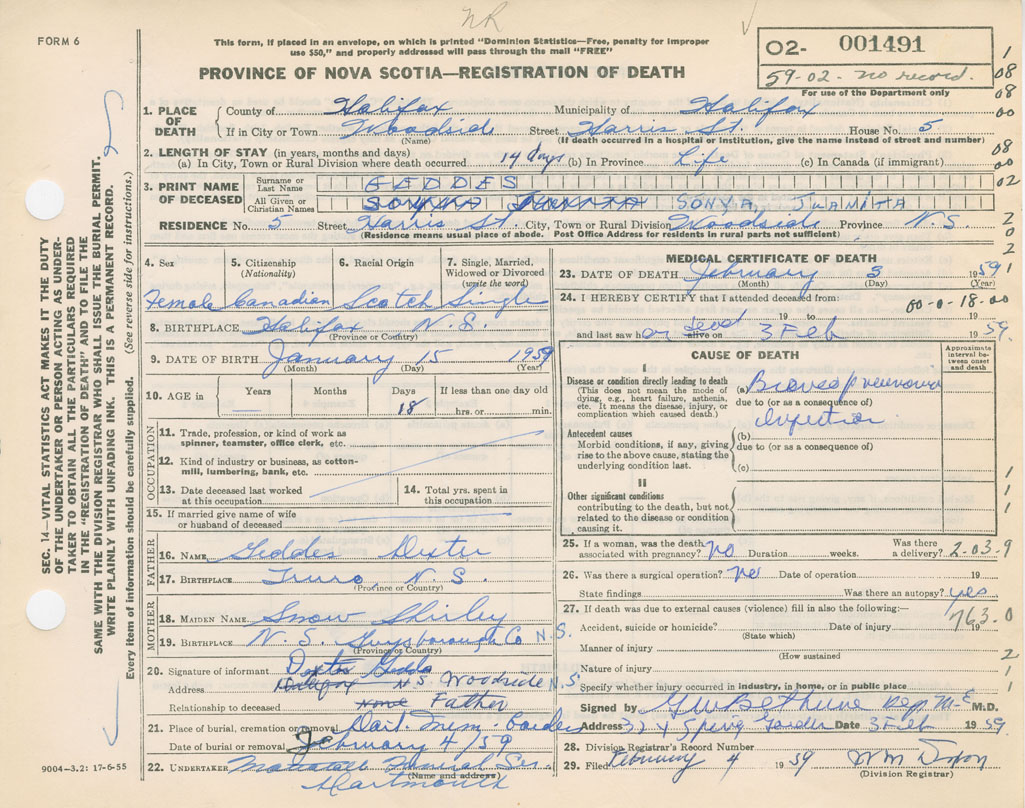 NR
FORM 6
This form, if placed in an envelope, on which is printed "Dominion Statistics—Free, penalty for improper
use $50," and properly addressed will pass through the mail "FREE"
PROVINCE OF NOVA SCOTIA—REGISTRATION OF DEATH
02- 001491
59-02- no record.
For use of the Department only
1
08
08
00
00
00
02
2
0
2
2
1
1. PLACE OF DEATH
County of Halifax Municipality of Halifax
If in City or Town Woodside Street Harris St. House No. 5
(Name) (If death occurred in a hospital or institution, give the name instead of street and number)
2. LENGTH OF STAY (in years, months and days)
(a) In City, Town or Rural Division where death occurred 14 days (b) In Province Life (c) In Canada (if immigrant)
3. PRINT NAME OF DECEASED
Surname or Last Name GEDDES
All Given or Christian Names SONYA JUANITA
RESIDENCE No. 5 Street Harris St. City, Town or Rural Division Woodside Province N.S.
(Residence means usual place of abode. Post Office Address for residents in rural parts not sufficient)
4. Sex 5. Citizenship (Nationality) 6. Racial Origin 7. Single, Married, Widowed or Divorced (write the word)
Female Canadian Scotch Single
8. BIRTHPLACE Halifax N.S.
(Province or Country)
9. DATE OF BIRTH January 15 1959
(Month) (Day) (Year)
10. AGE in Years Months Days If less than one day old
18 hrs. or min.
OCCUPATION
11. Trade, profession, or kind of work as
spinner, teamster, office clerk, etc.
12. Kind of industry or business, as cotton-
mill, lumbering, bank, etc.
13. Date deceased last worked
at this occupation
14. Total yrs. spent in
this occupation
15. If married give name of wife
or husband of deceased
FATHER
16. NAME Geddes Dexter
17. BIRTHPLACE Truro, N.S.
(Province or Country)
MOTHER
18. MAIDEN NAME Snow Shirley
19. BIRTHPLACE N.S. Guysborough Co N.S.
(Province or Country)
20. Signature of informant Dexter Geddes
Address Halifax N.S. Woodside N.S
Relationship to deceased None Father
21. Place of burial, cremation or removal Dart. Mem. Garden
Date of burial or removal February 4/59
22. UNDERTAKER Funeral Ser.
(Name and address)
Dartmouth
MEDICAL CERTIFICATE OF DEATH
23. DATE OF DEATH February 3 1959
(Month) (Day) (Year)
24. I HEREBY CERTIFY that I attended deceased from:
00-0-18-00
19 to 19
and last saw h er dead alive on 3 Feb 1959
CAUSE OF DEATH
Approximate interval between onset and death
I
Disease or condition directly leading to death
(This does not mean the mode of
dying, e.g., heart failure, asthenia,
etc. It means the disease, injury, or
complication which caused death.)
(a)
due to (or as a consequence of)
infection
Antecedent causes
Morbid conditions, if any, giving
rise to the above cause, stating the
underlying condition last.
(b)
due to (or as a consequence of)
(c)
II
Other significant conditions
contributing to the death, but not
related to the disease or condition
causing it.
1
1
1
25. If a woman, was the death
associated with pregnancy? no Duration weeks. Was there
a delivery? 2-03-9
26. Was there a surgical operation? no Date of operation 19
State findings Was there an autopsy? yes
27. If death was due to external causes (violence) fill in also the following:—
763.0
Accident, suicide or homicide? Date of injury 19
(State which)
Manner of injury
(How sustained
2
Nature of injury
1
Specify whether injury occurred in industry, in home, or in public place
1
Signed by G W Bethune Dep. M.E M.D.
Address 324 Spring Garden Date 3 Feb 1959
28. Division Registrar's Record Number
29. Filed February 4 1959
(Division Registrar)
9004-3.2: 17-6-55
SEC. 14—VITAL STATISTICS ACT MAKES IT THE DUTY
OF THE UNDERTAKER OR PERSON ACTING AS UNDER-
TAKER TO OBTAIN ALL THE PARTICULARS REQUIRED
IN THE "REGISTRATION OF DEATH" AND TO FILE THE
SAME WITH THE DIVISION REGISTRAR WHO SHALL ISSUE THE BURIAL PERMIT.
WRITE PLAINLY WITH UNFADING INK. THIS IS A PERMANENT RECORD.
Every item of information should be carefully supplied. (See reverse side for instructions.)